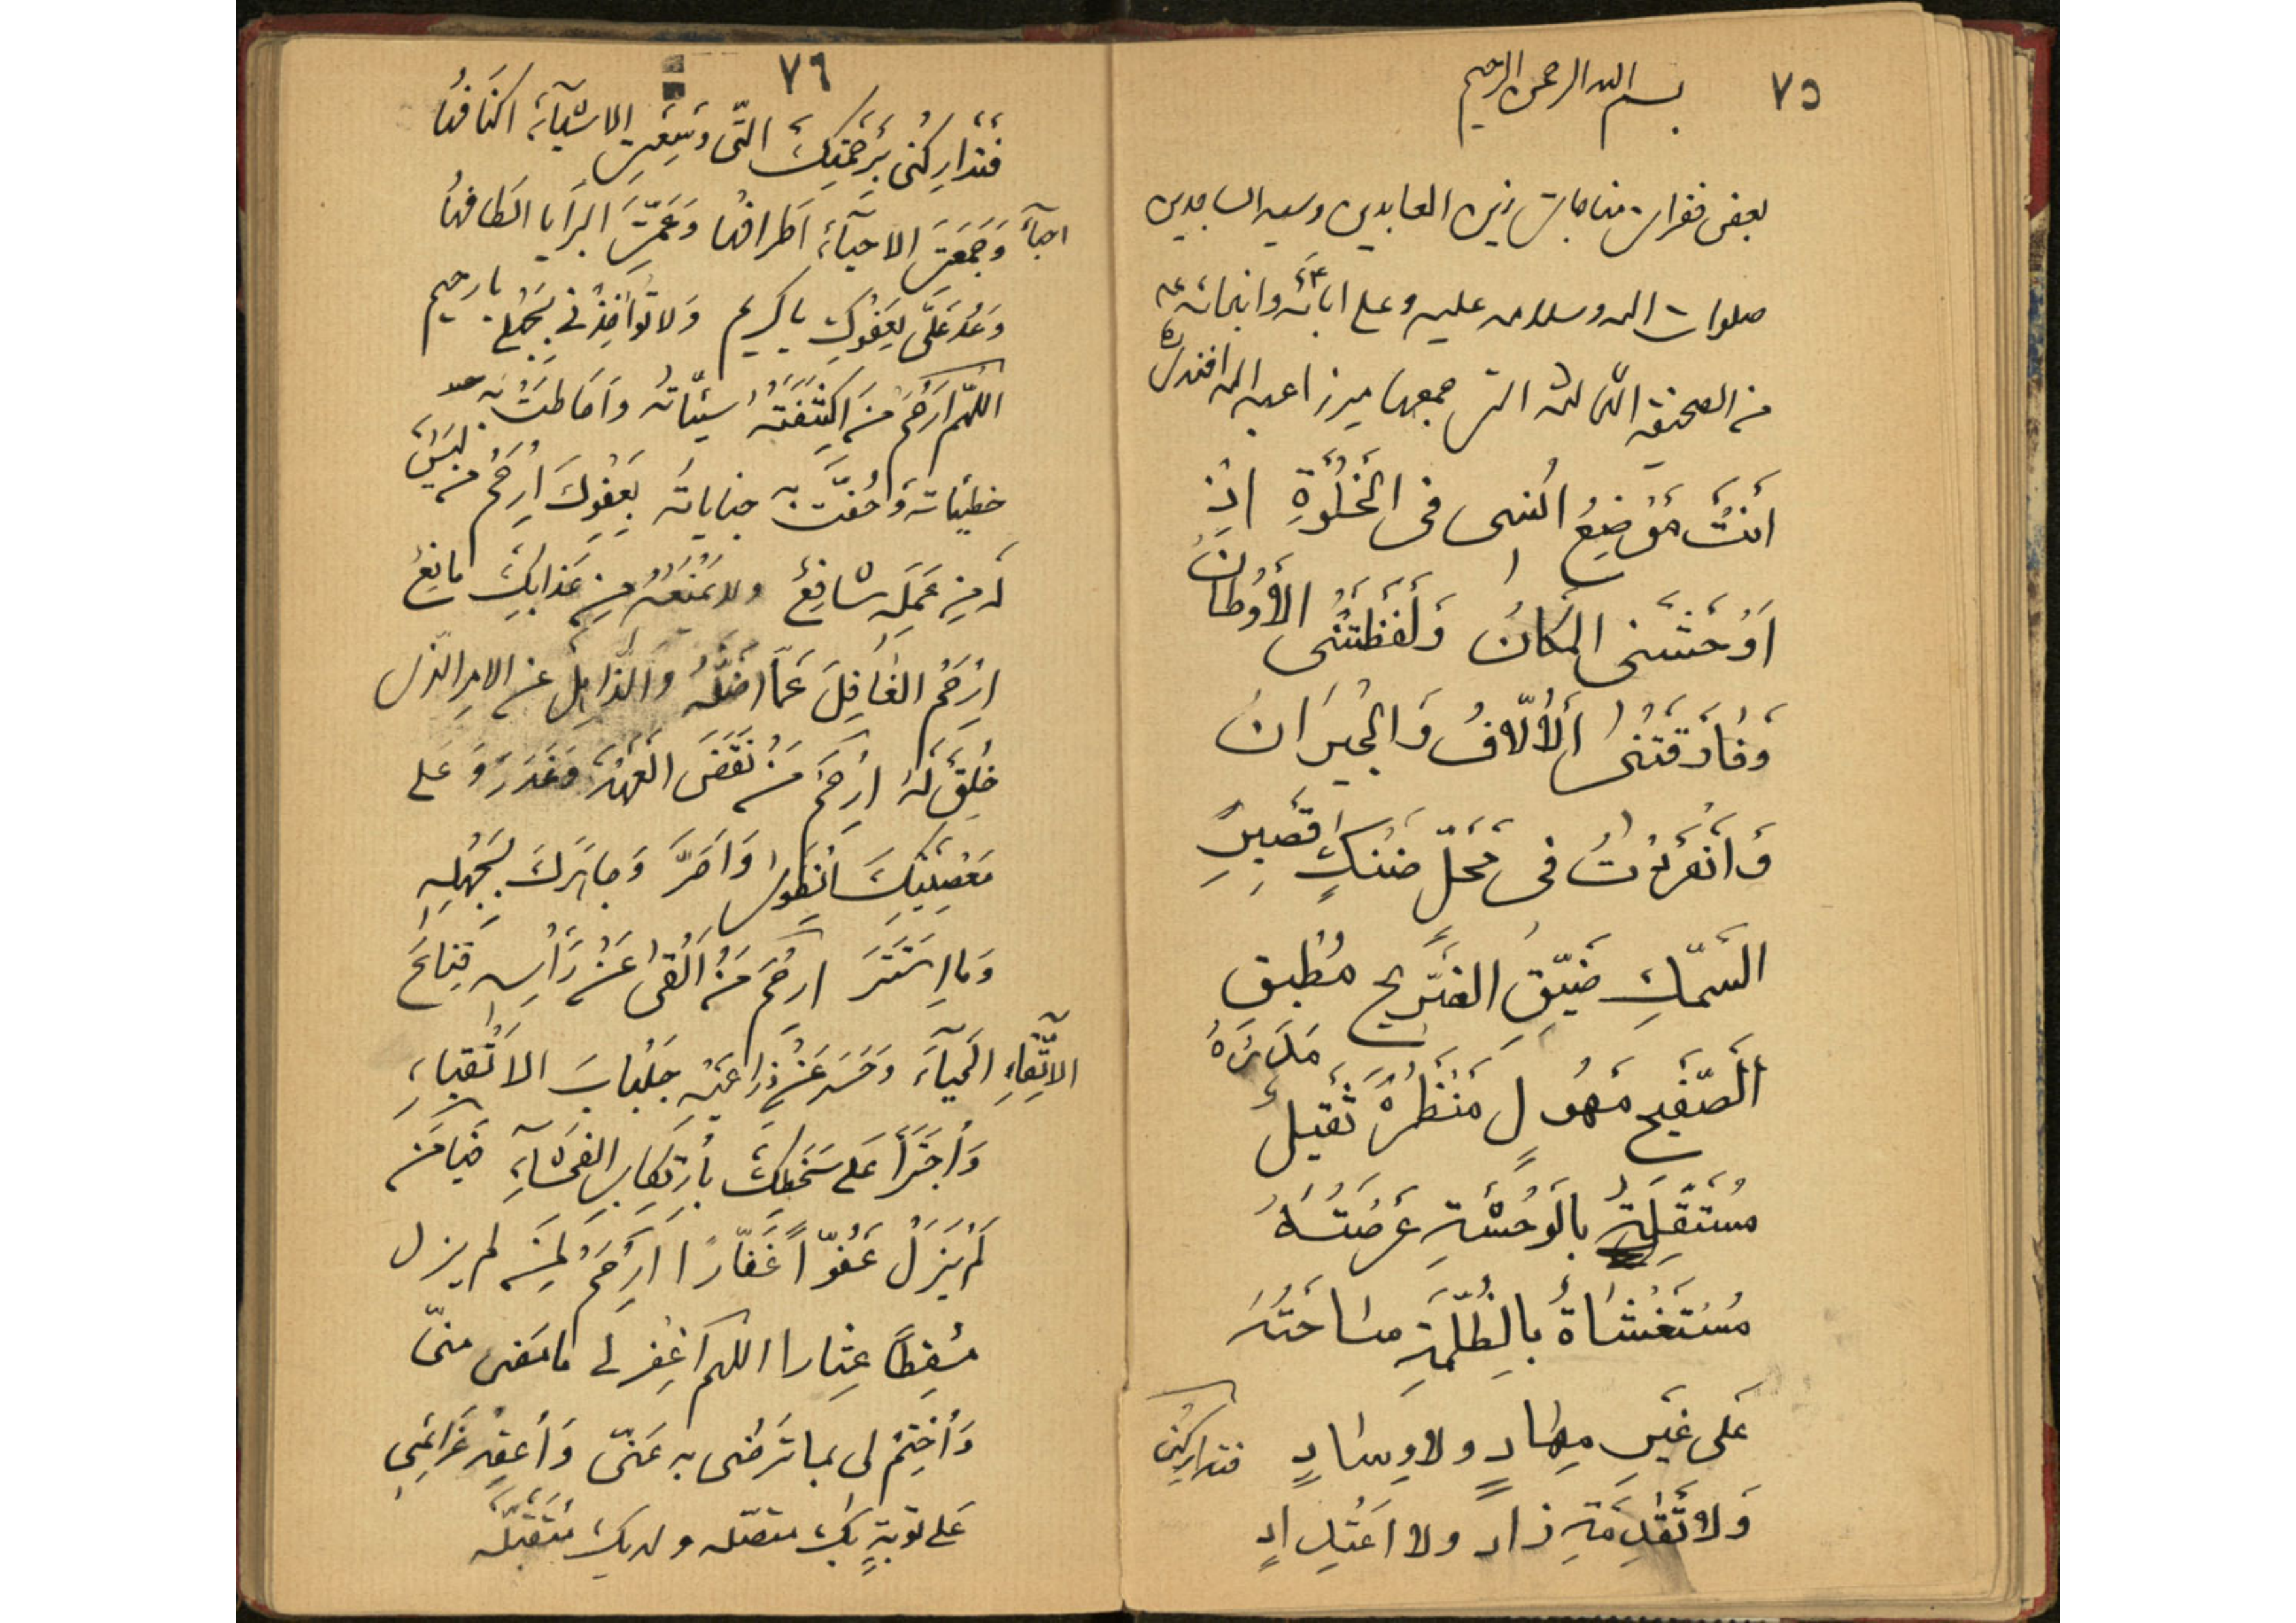 ٧٥
بسم الله الرحمن الرحیم
بعض فقرات مناجات زین العابدین وسید الساجدین
صلوات الله وسلامه علیه وعلی ابائه وابنائه
من الصحیفة الثالثة التی جمعها میرزا عبد الله افندی
اَنْتَ مَوْضِعُ اُنْسی فی الْخَلْوَةِ اِذْ
اَوْحَشَنی الْمَکَانُ وَلَفَظَتْنی الْاَوْطَانُ
وَفَارَقَتْنی الْاُلّافُ وَالْجیرَانُ
وَانْفَرَدْتُ فی مَحَلٍّ ضَنْكٍ قَصیرِ
السَّمْكِ ضَیِّقِ الضَّریحِ مُطْبِقِ
الصَّفیحِ مَهُولٍ مَنْظَرُهُ ثَقیلٍ مَدَرُهُ
مُسْتَقِلَةٍ بِالْوَحْشَةِ عَرْصَتُهُ
مُسْتَغْشَاةٍ بِالظُّلْمَةِ سَاحَتُهُ
عَلی غَیْرِ مِهَادٍ وَلا وِسَادٍ
وَلا تَقْدِمَةِ زادٍ ولا اعْتِدادٍ
فتدارکنی
٧٦
فَتَدارَکْنی بِرَحْمَتِكَ الَّتی وَسِعَتِ الاشْیآءَ اکْنَافُها
وَجَمَعَتِ الاحْیآءَ اَطْرَافُها وَعَمَّتِ الْبَرَایا اَلْطَافُها
وَعُدْ عَلَیَّ بِعَفْوِكَ یا کَرِیمُ وَلا تُؤَاخِذْنی بِجَهْلی یا رحیم
اللّهُمَّ ارْحَمْ مَنِ اکْتَنَفَتْهُ سَیِّئَاتُه وَاَحَاطَتْ بِه
خطیئاته وَحُفَّتْ به جنایاته بِعَفْوِكَ اِرْحَمْ مَنْ لَیْسَ
لَهُ مِنْ عَمَلِهِ شَافِعٌ ولا یَمْنَعُهُ مِنْ عَذابِكَ مانِعٌ
اِرْحَمِ الغَافِلَ عَمَّا اَضَلَّهُ وَالذَّاهِلَ عَنِ الامرِ الَّذی
خُلِقَ لَهُ اِرْحَمْ مَنْ نَقَضَ الْعَهْدَ وَغَدَرَ وَعَلی
مَعْصِیَتِكَ انْطَوی وَاَصَرَّ وَجاهَرَكَ بِجَهْلِهِ
وَمَا اسْتَتَرَ ارْحَمْ مَنْ اَلْقی عَنْ رَأْسِهِ قِنَاعَ
الْحَیآءِ وَحَسَرَ عَنْ ذِرَاعَیْهِ جِلْبَابَ الاَتْقِیاءِ
وَاجْتَرَأَ عَلی سَخَطِكَ بِارْتِکَابِ الفَحْشَآءِ فَیَا مَنْ
لَمْ یَزَلْ عَفُوّاً غَفَّارًا اِرْحَمْ لِمَنْ لم یزل
مُسْقِطاً عِثارا اللهم اغْفِر لی مَا مَضی منّی
وَاخْتِمْ لی بما تَرضی به عَنّی وَاعْقِدْ عَزَائِمی
عَلی توبةٍ بِكَ متّصله ولدیك مُتَقَبَّلَه